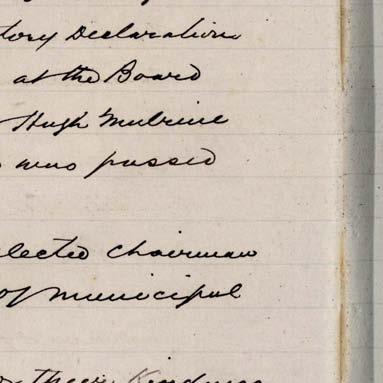 tory Declaration
at the Board
Hugh Mulvine
was passed
elected Chairman
of Municipal
their Kindness